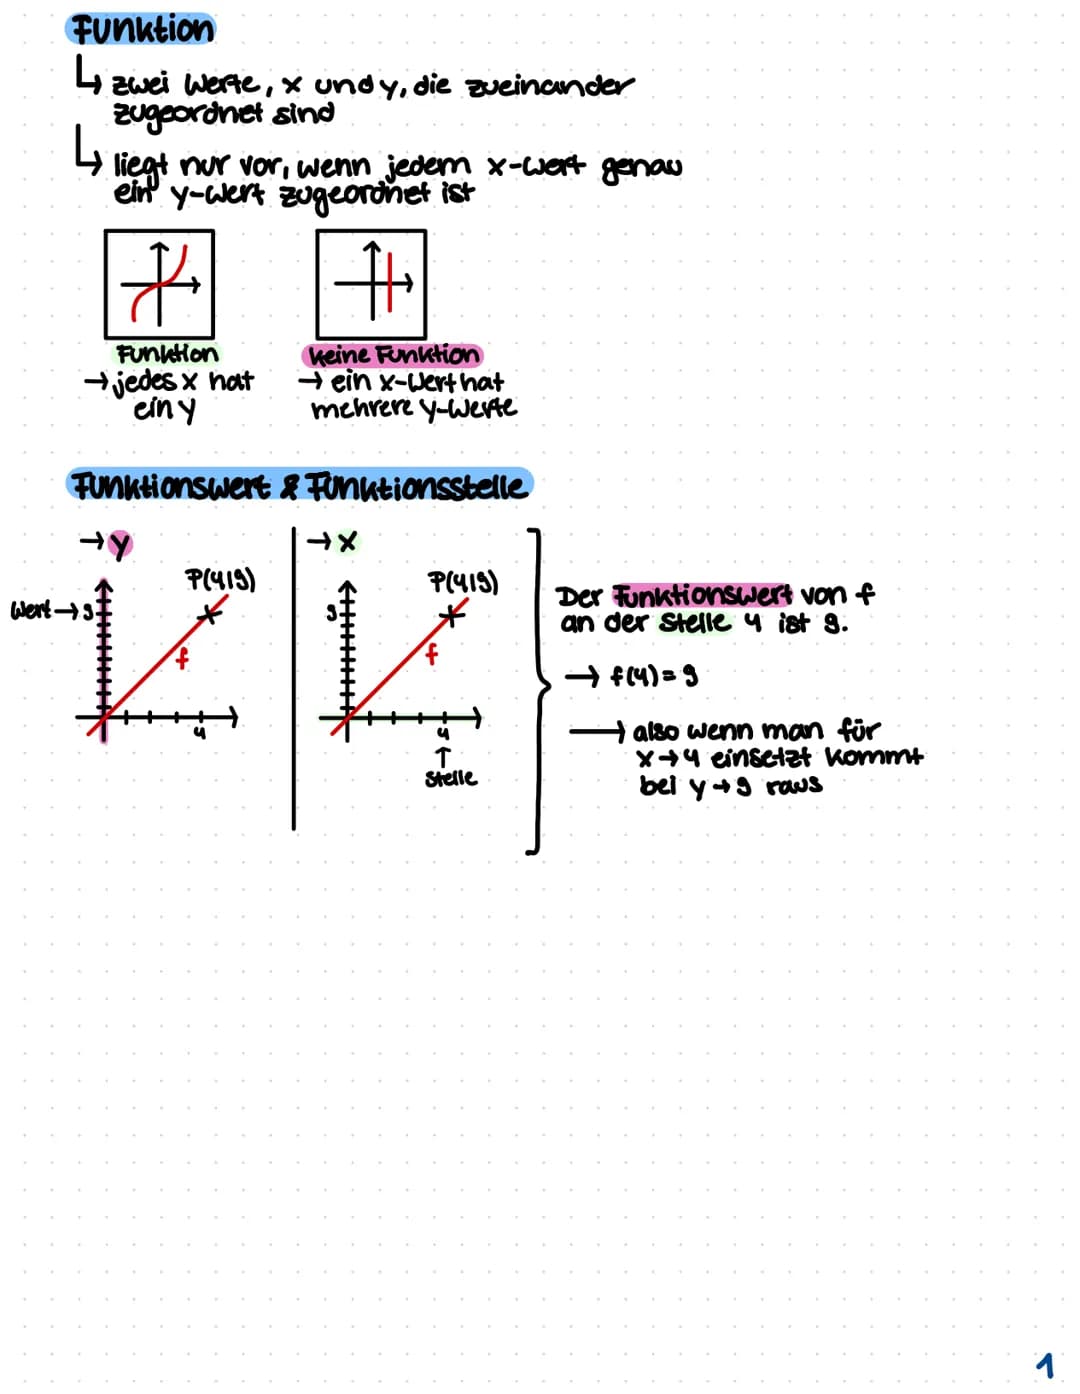 Funktion
↳ zwei Werte, x und y, die zueinander
zugeordnet sind
↳ liegt nur vor, wenn jedem x-Wert genau
ein y-Wert zugeordnet ist
Funktion
→ jedes x hat
ein y
keine Funktion
→ ein x-Wert hat
mehrere y-Werte
Funktionswert & Funktionsstelle
→ y
P(4|9)
Wert → 9
f
4
→ x
P(4|9)
9
f
4
↑
Stelle
Der Funktionswert von f
an der Stelle 4 ist 9.
→ f(4) = 9
→ also wenn man für
x → 4 einsetzt kommt
bei y → 9 raus
1